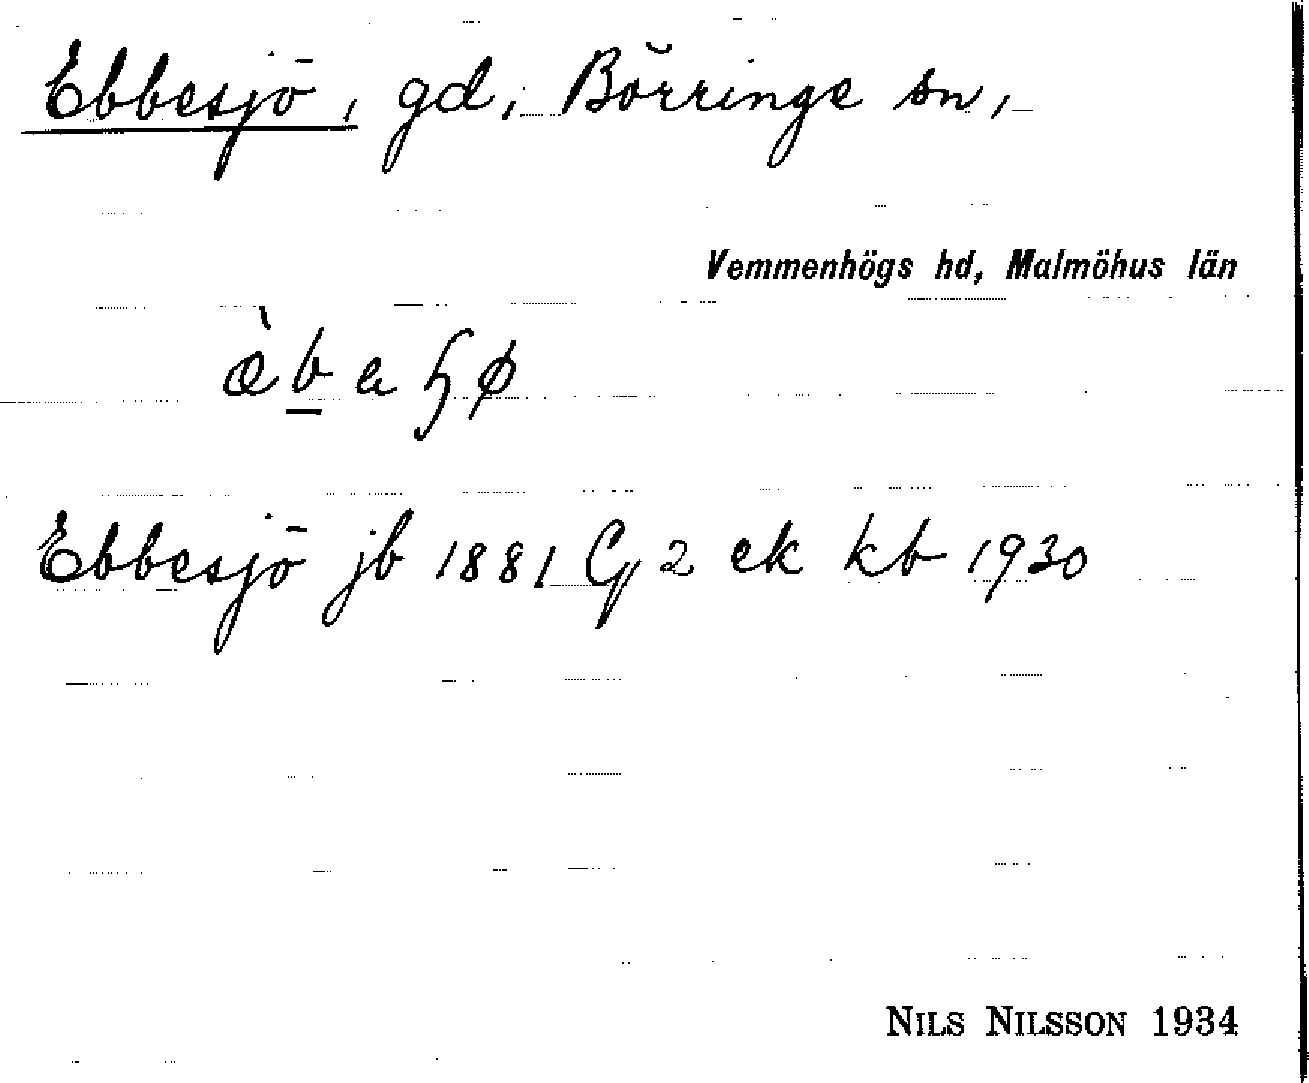 Ebbesjö, gd, Börringe sn,
Vemmenhögs hd, Malmöhus län
Ebbesjö jb 1881 2 ek kb 1930
NILS NILSSON 1934